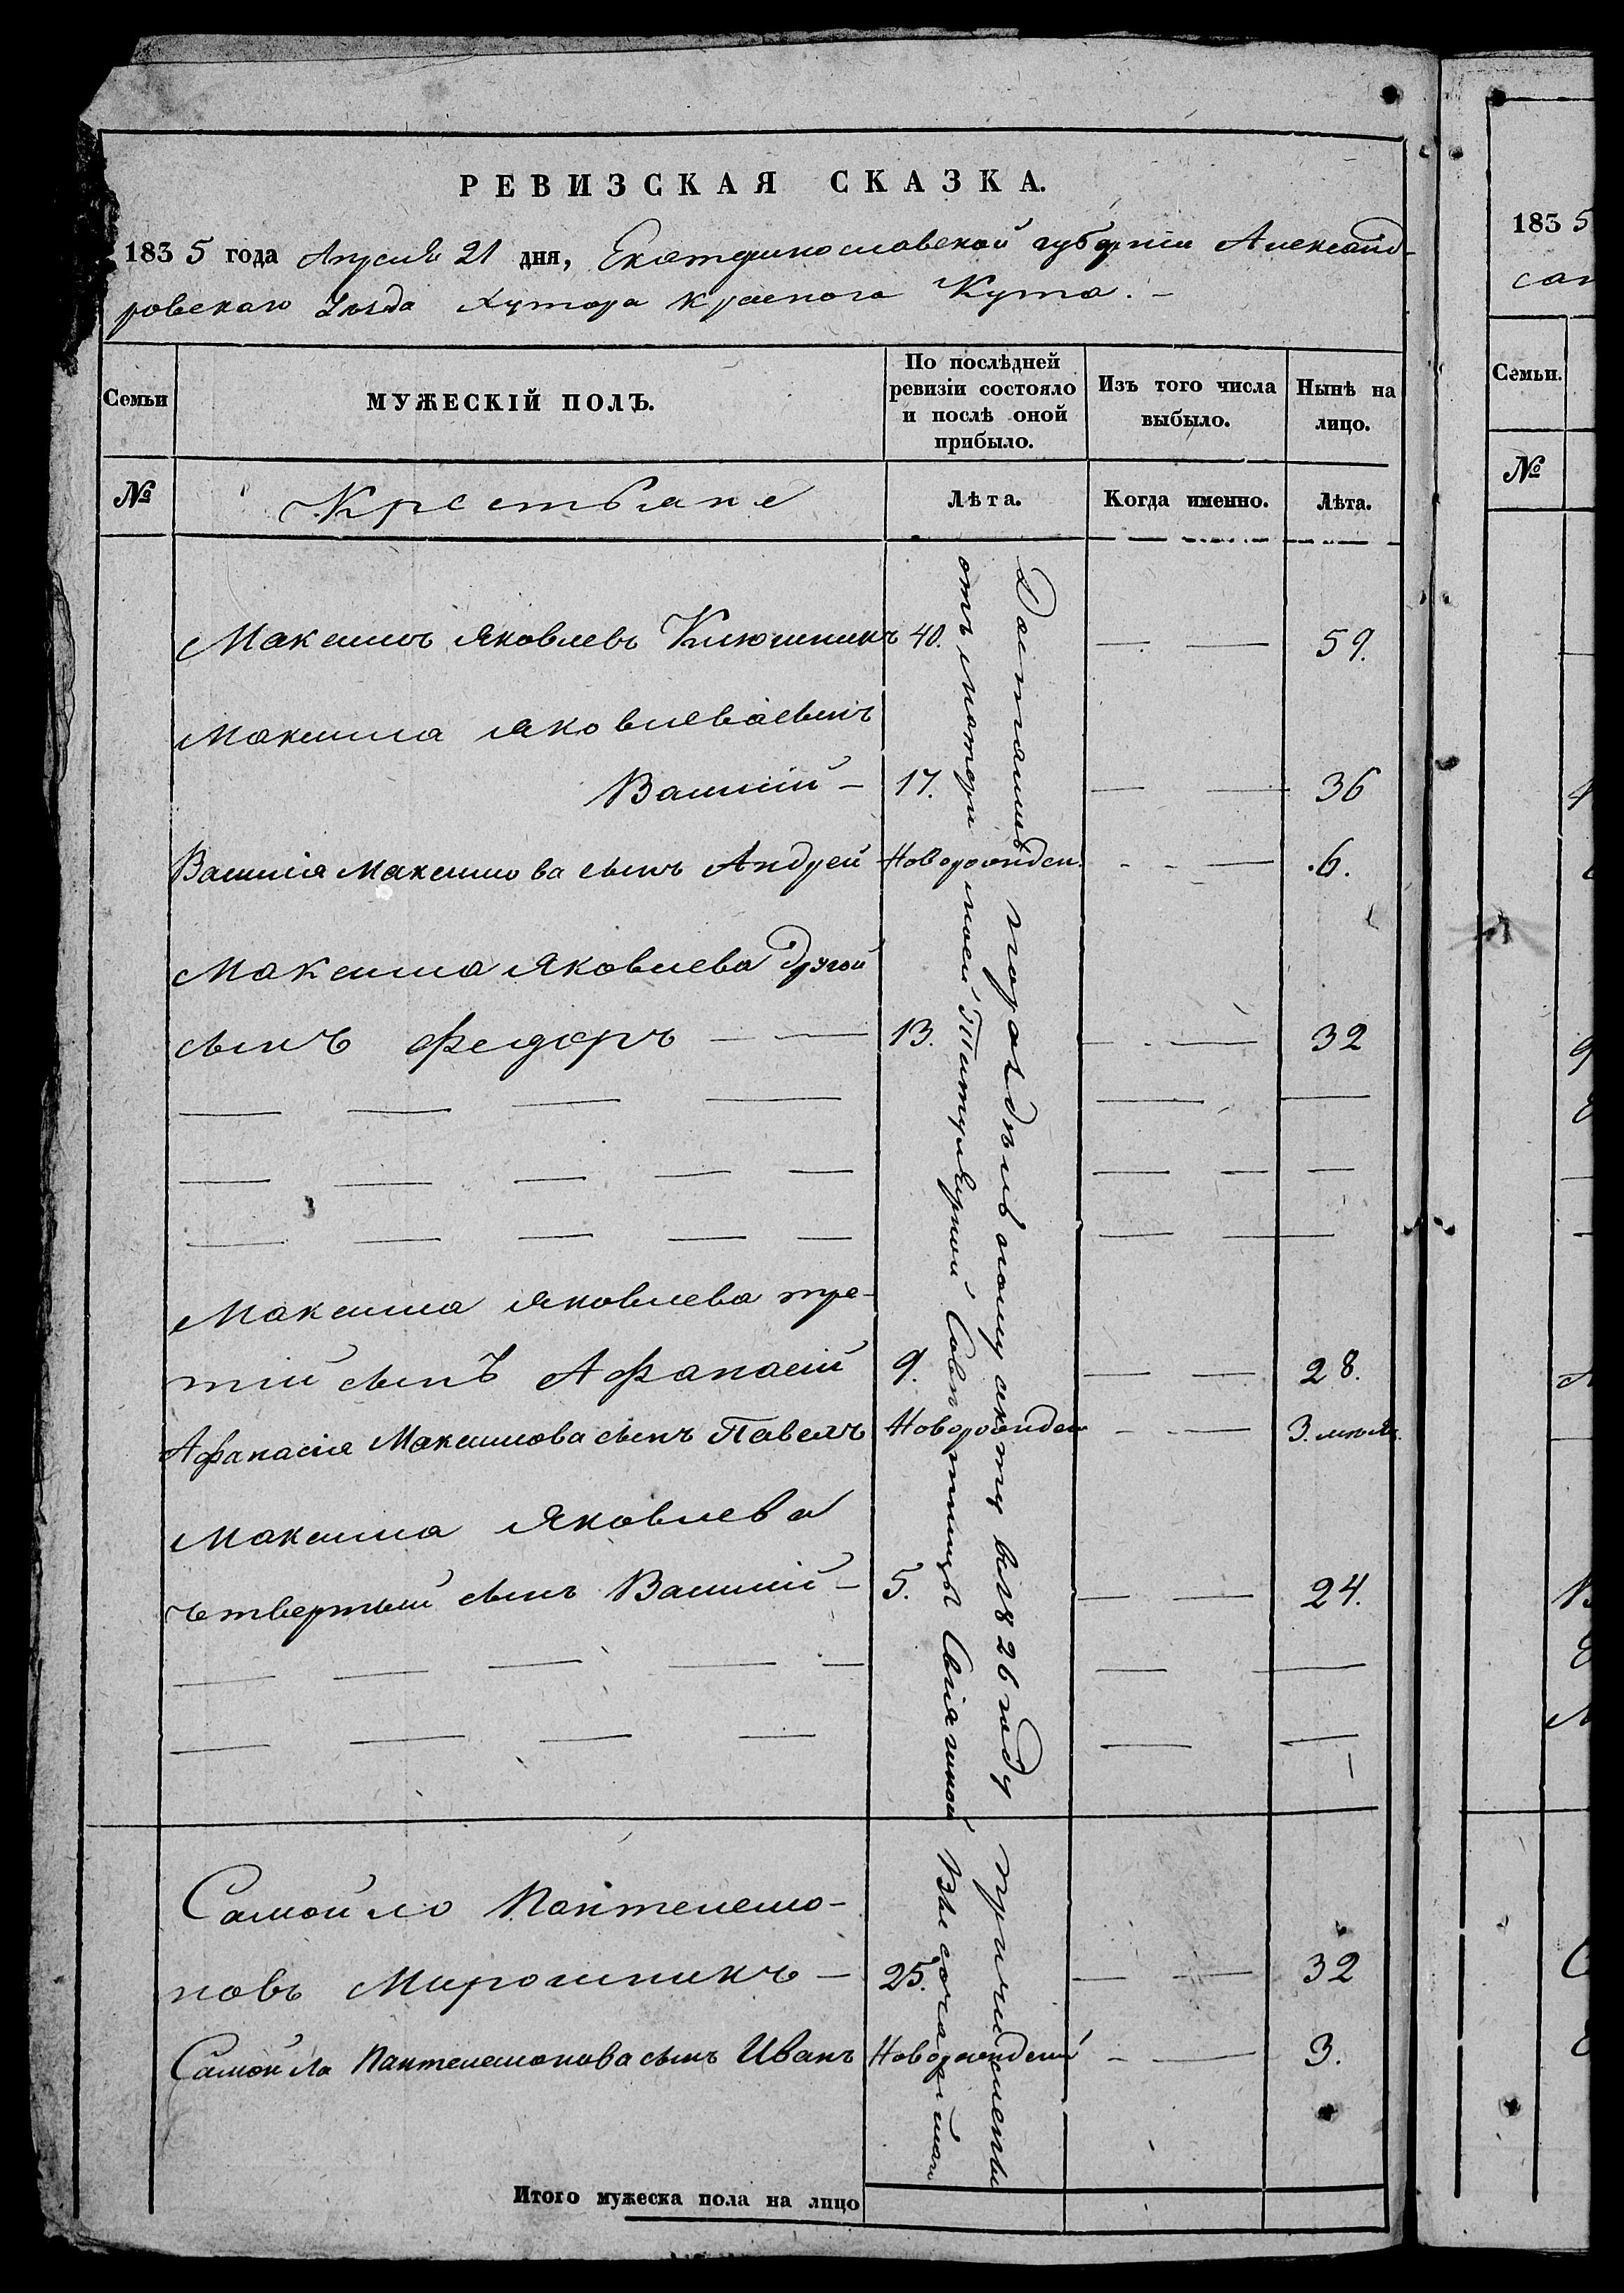 РЕВИЗСКАЯ СКАЗКА.
1835 года Апреля 21 дня, Екатеринославской губернiи Александ-
ровскаго Уезда Хутора Краснога Кута. -
Семьи
МУЖЕСКІЙ ПОЛЪ.
По послѣдней ревизіи состояло и послѣ оной прибыло.
Изъ того числа выбыло.
Нынѣ на лицо.
№
Крестьяне
Лѣта.
Когда именно.
Лѣта.
Максимъ Яковлевъ Ключникъ 40. — — 59.
Максима Яковлева сынъ
Василій — 17. — — 36
Василія Максимова сынъ Андрей Новорожден. - - — 6.
Максима Яковлева другой
сынъ Федоръ — — 13. — - — 32
Максима Яковлева тре-
тій сынъ Афанасій 9. — — 28.
Афанасія Максимова сынъ Павелъ Новорожден - - — 3. мѣся.
Максима Яковлева
четвертый сынъ Василій — 5. — — 24.
Самойло Пантелемо-
новъ Мирошникъ — 25. — — 32
Самойла Пантелемонова сынъ Иванъ Новорожденй - — 3.
Достались по раздѣльному акту въ 1826 году причислены
отъ матери моей Титулярной Совѣтницы
Итого мужеска пола на лицо
1835
Семьи.
№